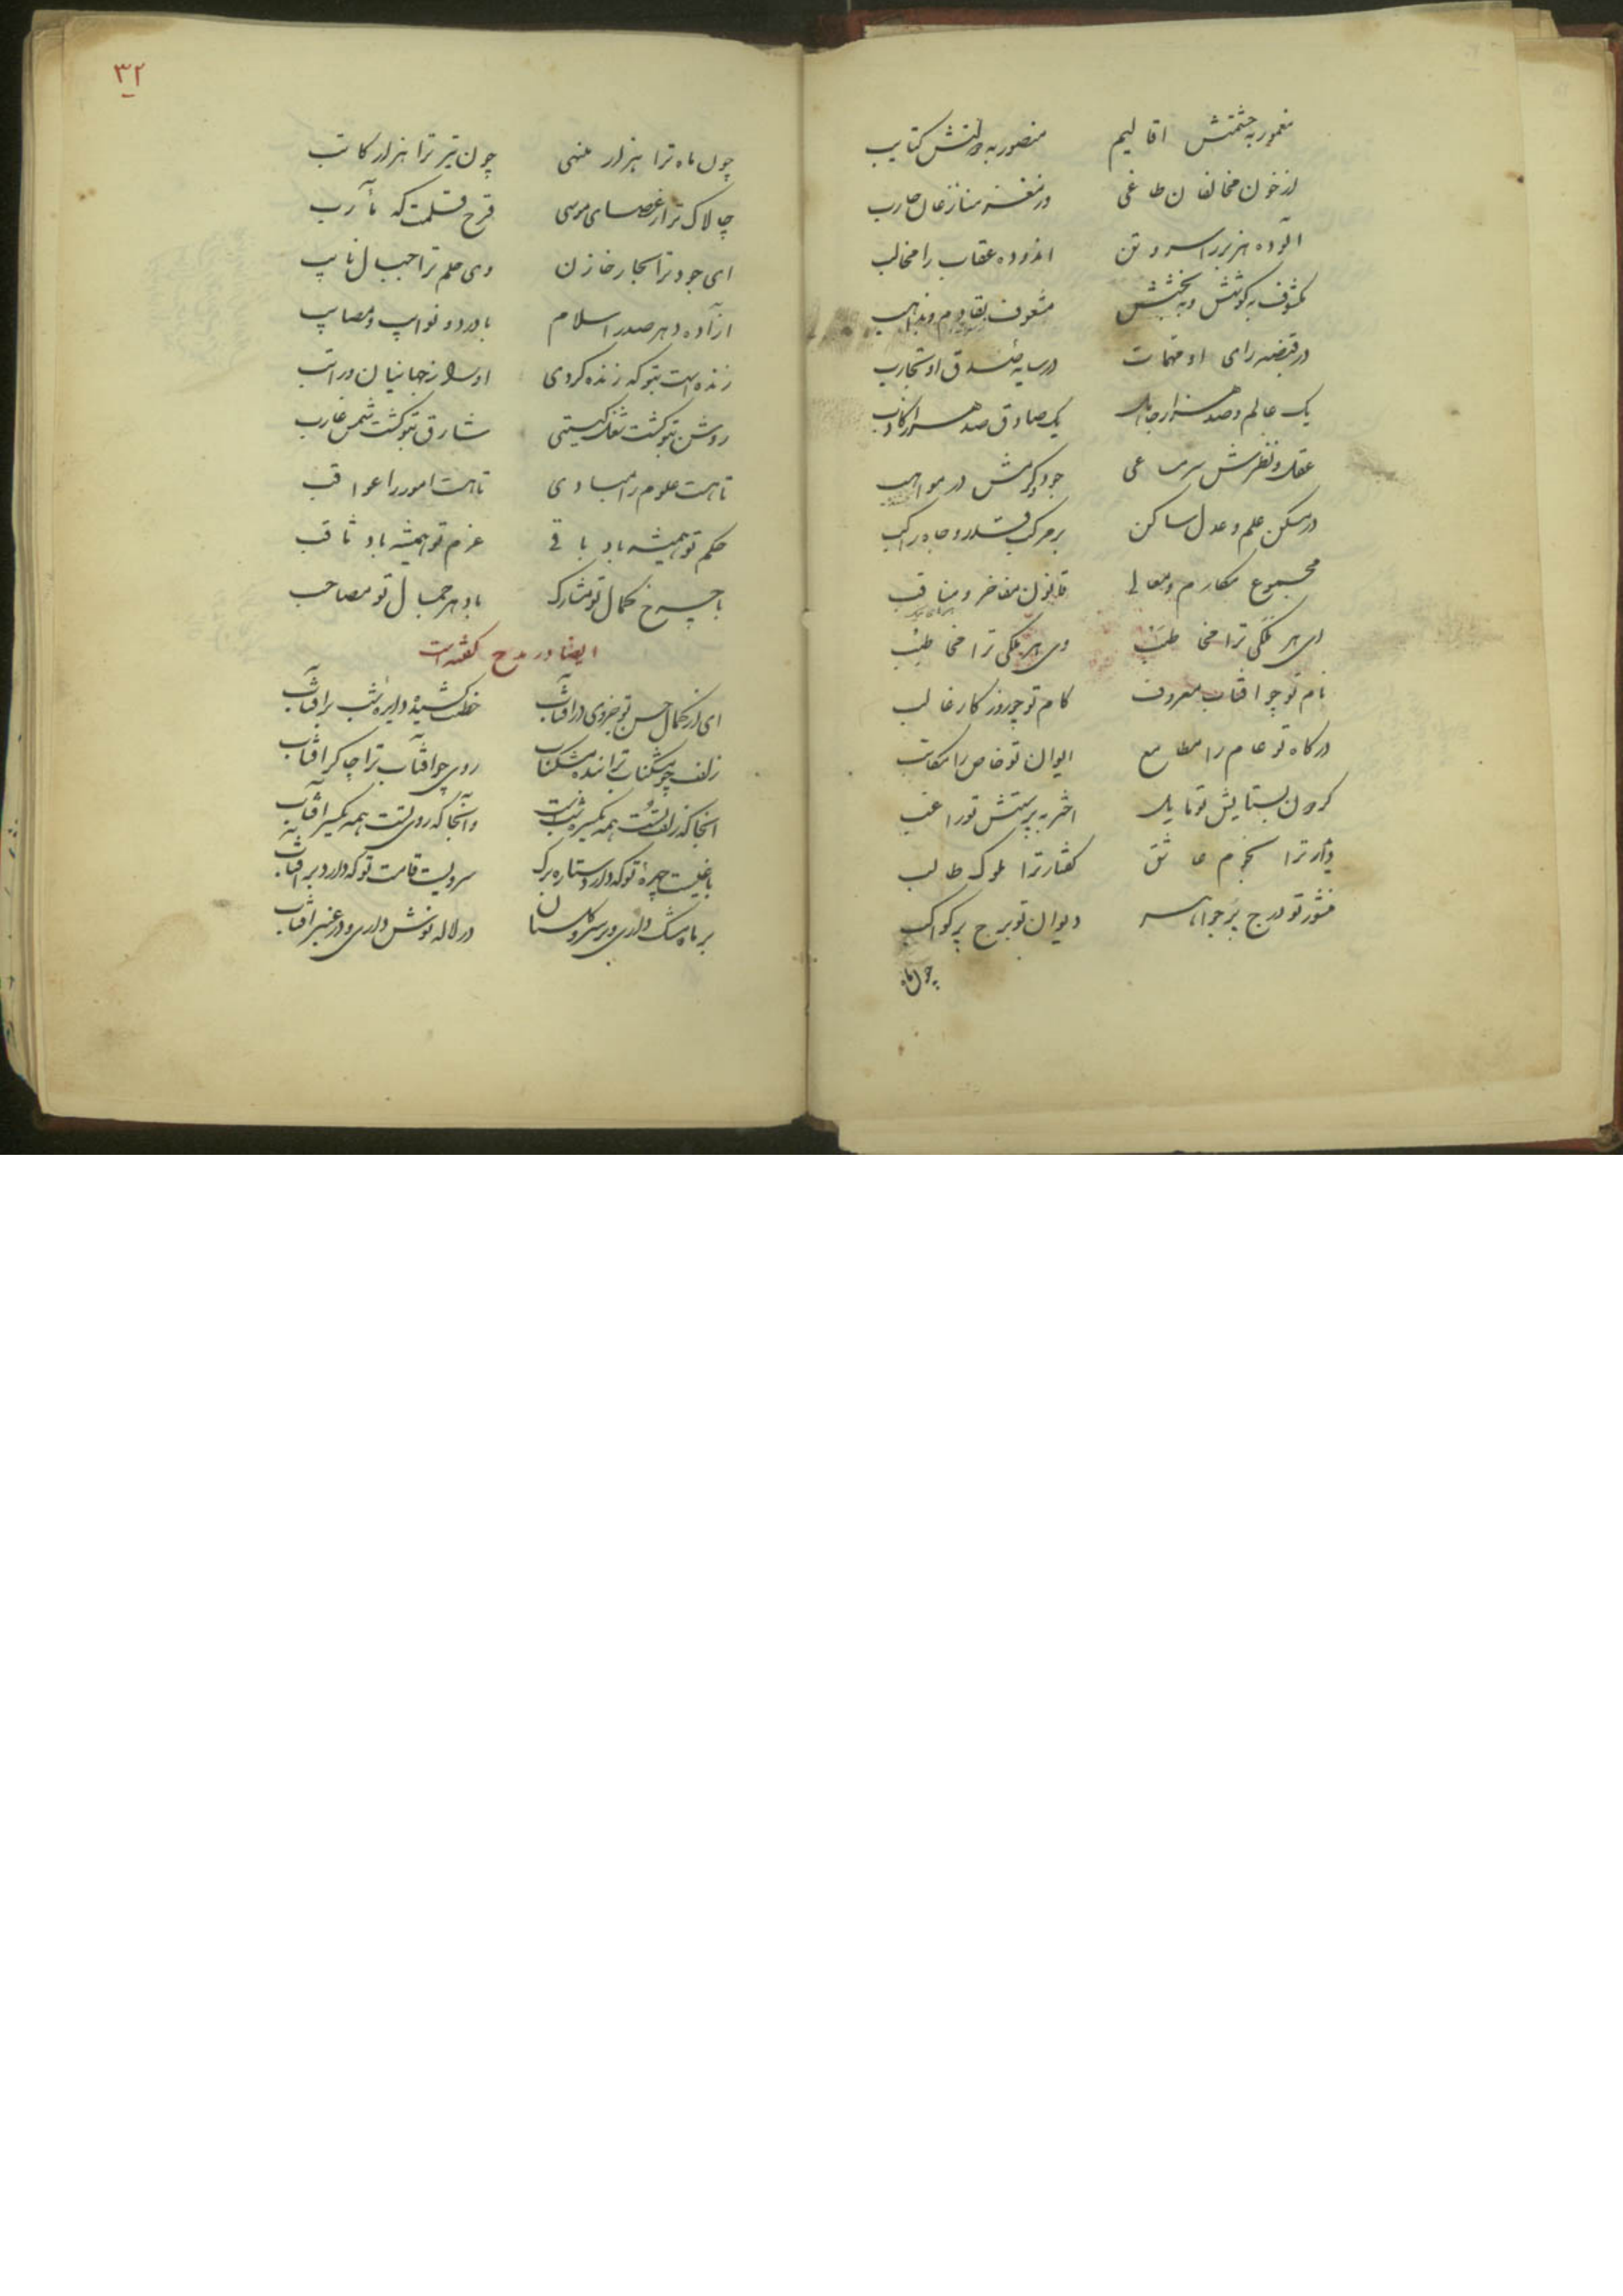 معمور به حشمتش اقالیم    منصور به دولتش کتایب
از خون مخالفان طاغی    در مغز منازعان حارب
آلوده هزبر را سر و تن    اندوده عقاب را مخالب
بکوشش و به بخشش    مشعوف
در قبضه رای او مهمات    در سایه او تجارب
یک عالم و صد هزار جاهل    یک صادق و صد هزار کاذب
عقل و نظرش    جود و کرمش در مواهب
در مسکن علم و عدل ساکن    بر مرکب قدر و جاه راکب
مجموع مکارم و معالی    قانون مفاخر و مناقب
ای هر فلکی ترا مخاطب    وی هر ملکی ترا مخاطب
نام تو چو آفتاب معروف    کام تو چو روزکار غالب
درکاه تو عام را مطامع    ایوان تو خاص را مکاتب
کردون بستایش تو مایل    اختر به پرستش تو راغب
دیدار ترا نجوم عاشق    کفتار ترا ملوک طالب
منشور تو درج پر جواهر    دیوان تو برج پر کواکب
چون ماه
۳۲
چون ماه ترا هزار منهی    چون تیر ترا هزار کاتب
چالاک تر از عصای موسی    قلمت که مآرب
ای جود ترا بحار خازن    وی حلم ترا جبال نایب
از آده دهر صدر اسلام    با درد و نوایب و مصایب
زنده است بتو که زنده کردی    او را ز جهانیان و راتب
روشن بتو کشت شغل کیتی    شارق بتو کشت شمس غارب
تا هست علوم را مبادی    تا هست امور را عواقب
حکم تو همیشه باد باقی    عزم تو همیشه باد ثاقب
با چرخ کمال تو مشارک    با دهر جمال تو مصاحب
ایضا در مدح کفته است
ای از کمال حسن تو جزوی در آفتاب    خطت کشیده دایره شب بر آفتاب
زلف چو مشکناب ترا بنده مشکناب    روی چو آفتاب ترا چاکر آفتاب
آنجا که زلف تست همه یکسره شبست    وآنجا که روی تست همه یکسر آفتاب
باغیست چهره تو که دارد ستاره برک    سرویست قامت تو که دارد بر آفتاب
بر ماه مشک داری و بر سرو کلستان    در لاله نوش داری و در عنبر آفتاب